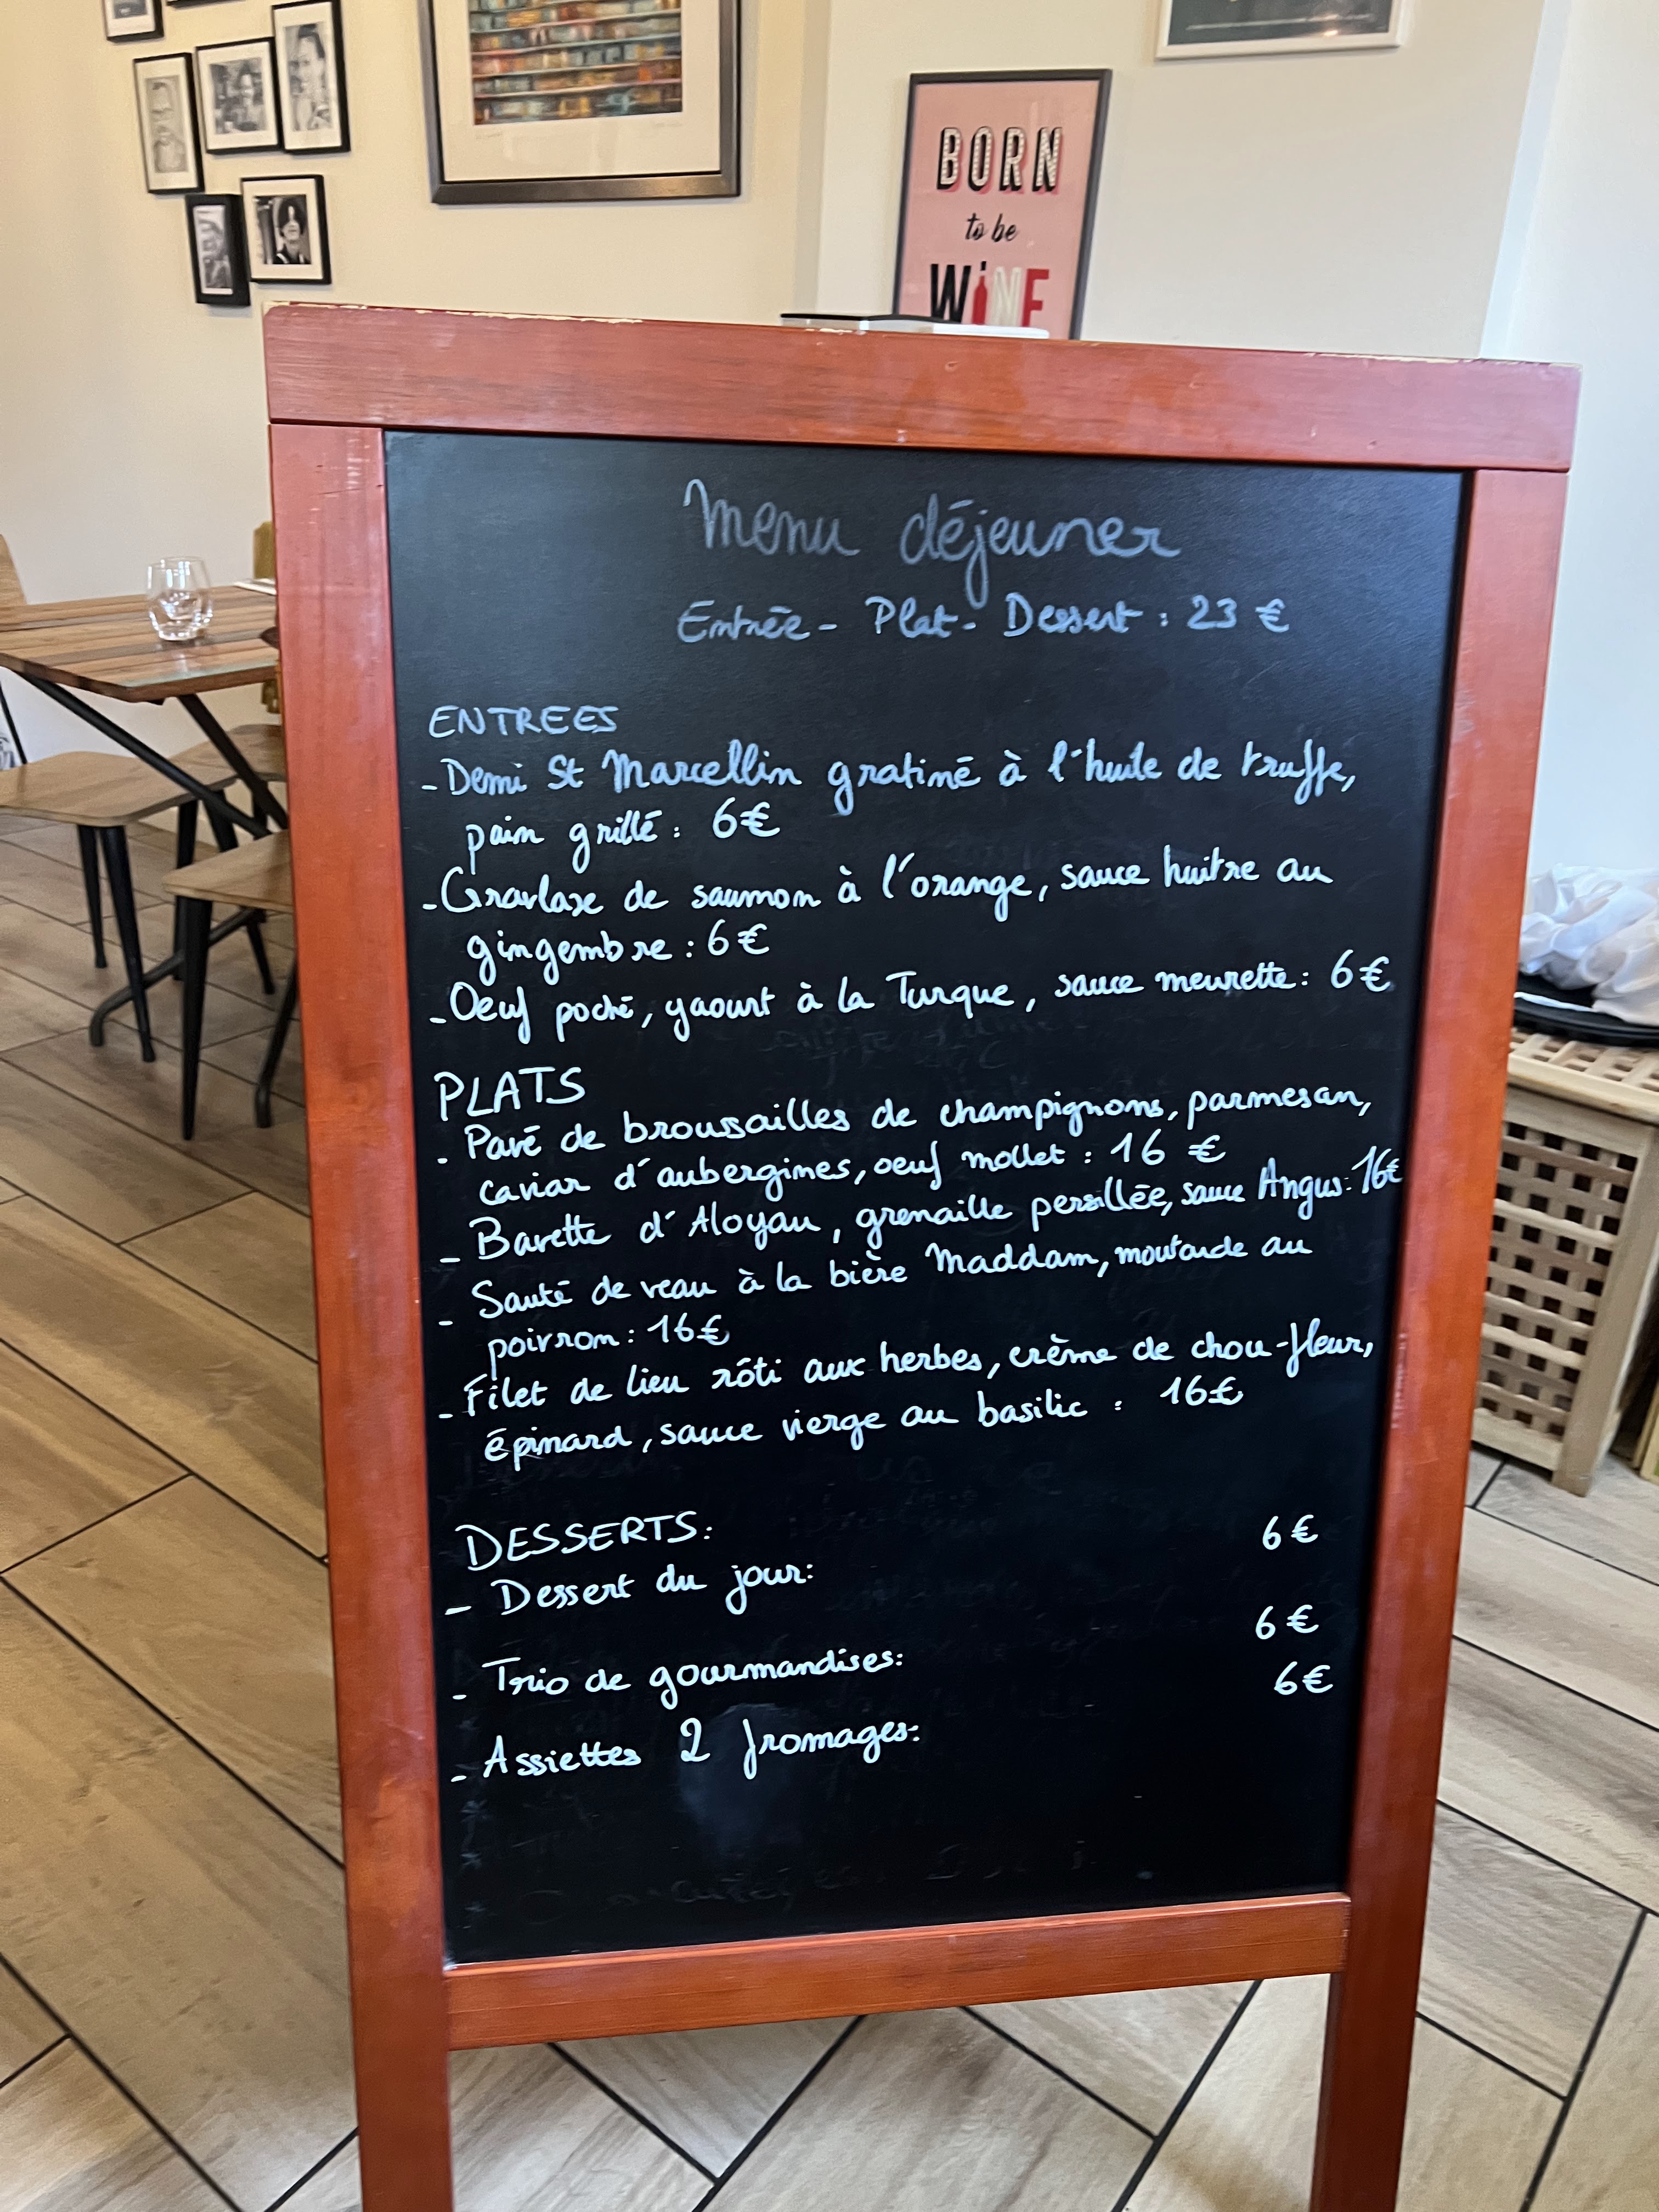 BORN
to be
WINE
Menu déjeuner
Entrée - Plat - Dessert : 23 €
ENTREES
- Demi St Marcellin gratiné à l'huile de truffe,
pain grillé : 6€
- Gravlaxe de saumon à l'orange, sauce huitre au
gingembre : 6€
- Oeuf poché, yaourt à la Turque, sauce meurette : 6€
PLATS
- Pavé de broussailles de champignons, parmesan,
caviar d'aubergines, oeuf mollet : 16 €
- Bavette d'Aloyau, grenaille persillée, sauce Angus : 16€
- Sauté de veau à la bière Maddam, moutarde au
poivron : 16€
- Filet de lieu rôti aux herbes, crème de chou-fleur,
épinard, sauce vierge au basilic : 16€
DESSERTS:
- Dessert du jour: 6€
- Trio de gourmandises: 6€
- Assiettes 2 fromages: 6€